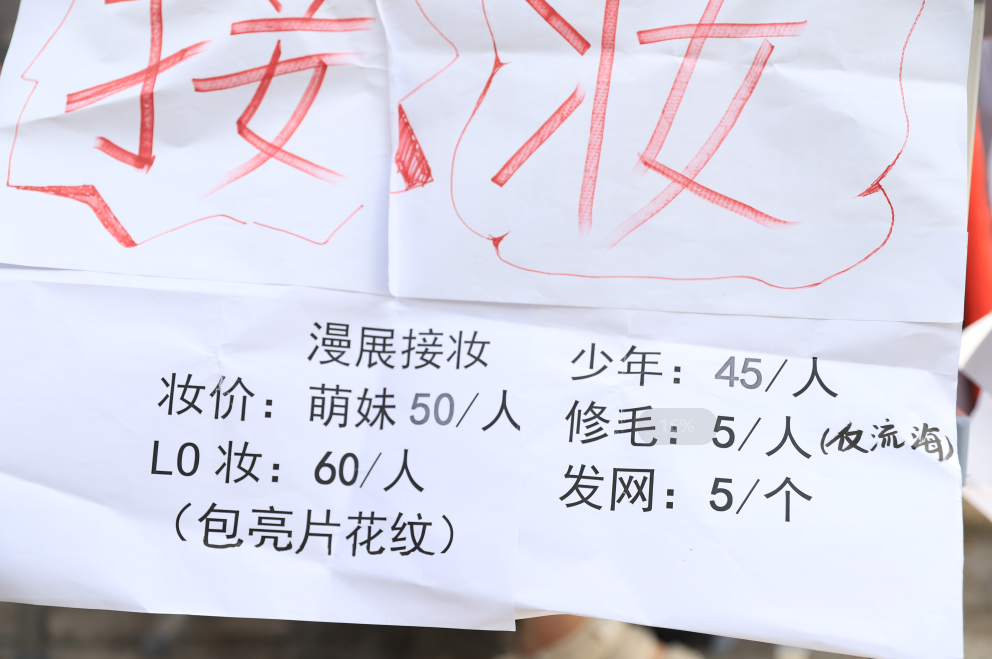 接妆
漫展接妆
妆价：萌妹 50/人
LO 妆：60/人
（包亮片花纹）
少年：45/人
修毛：5/人(仅流海)
发网：5/个